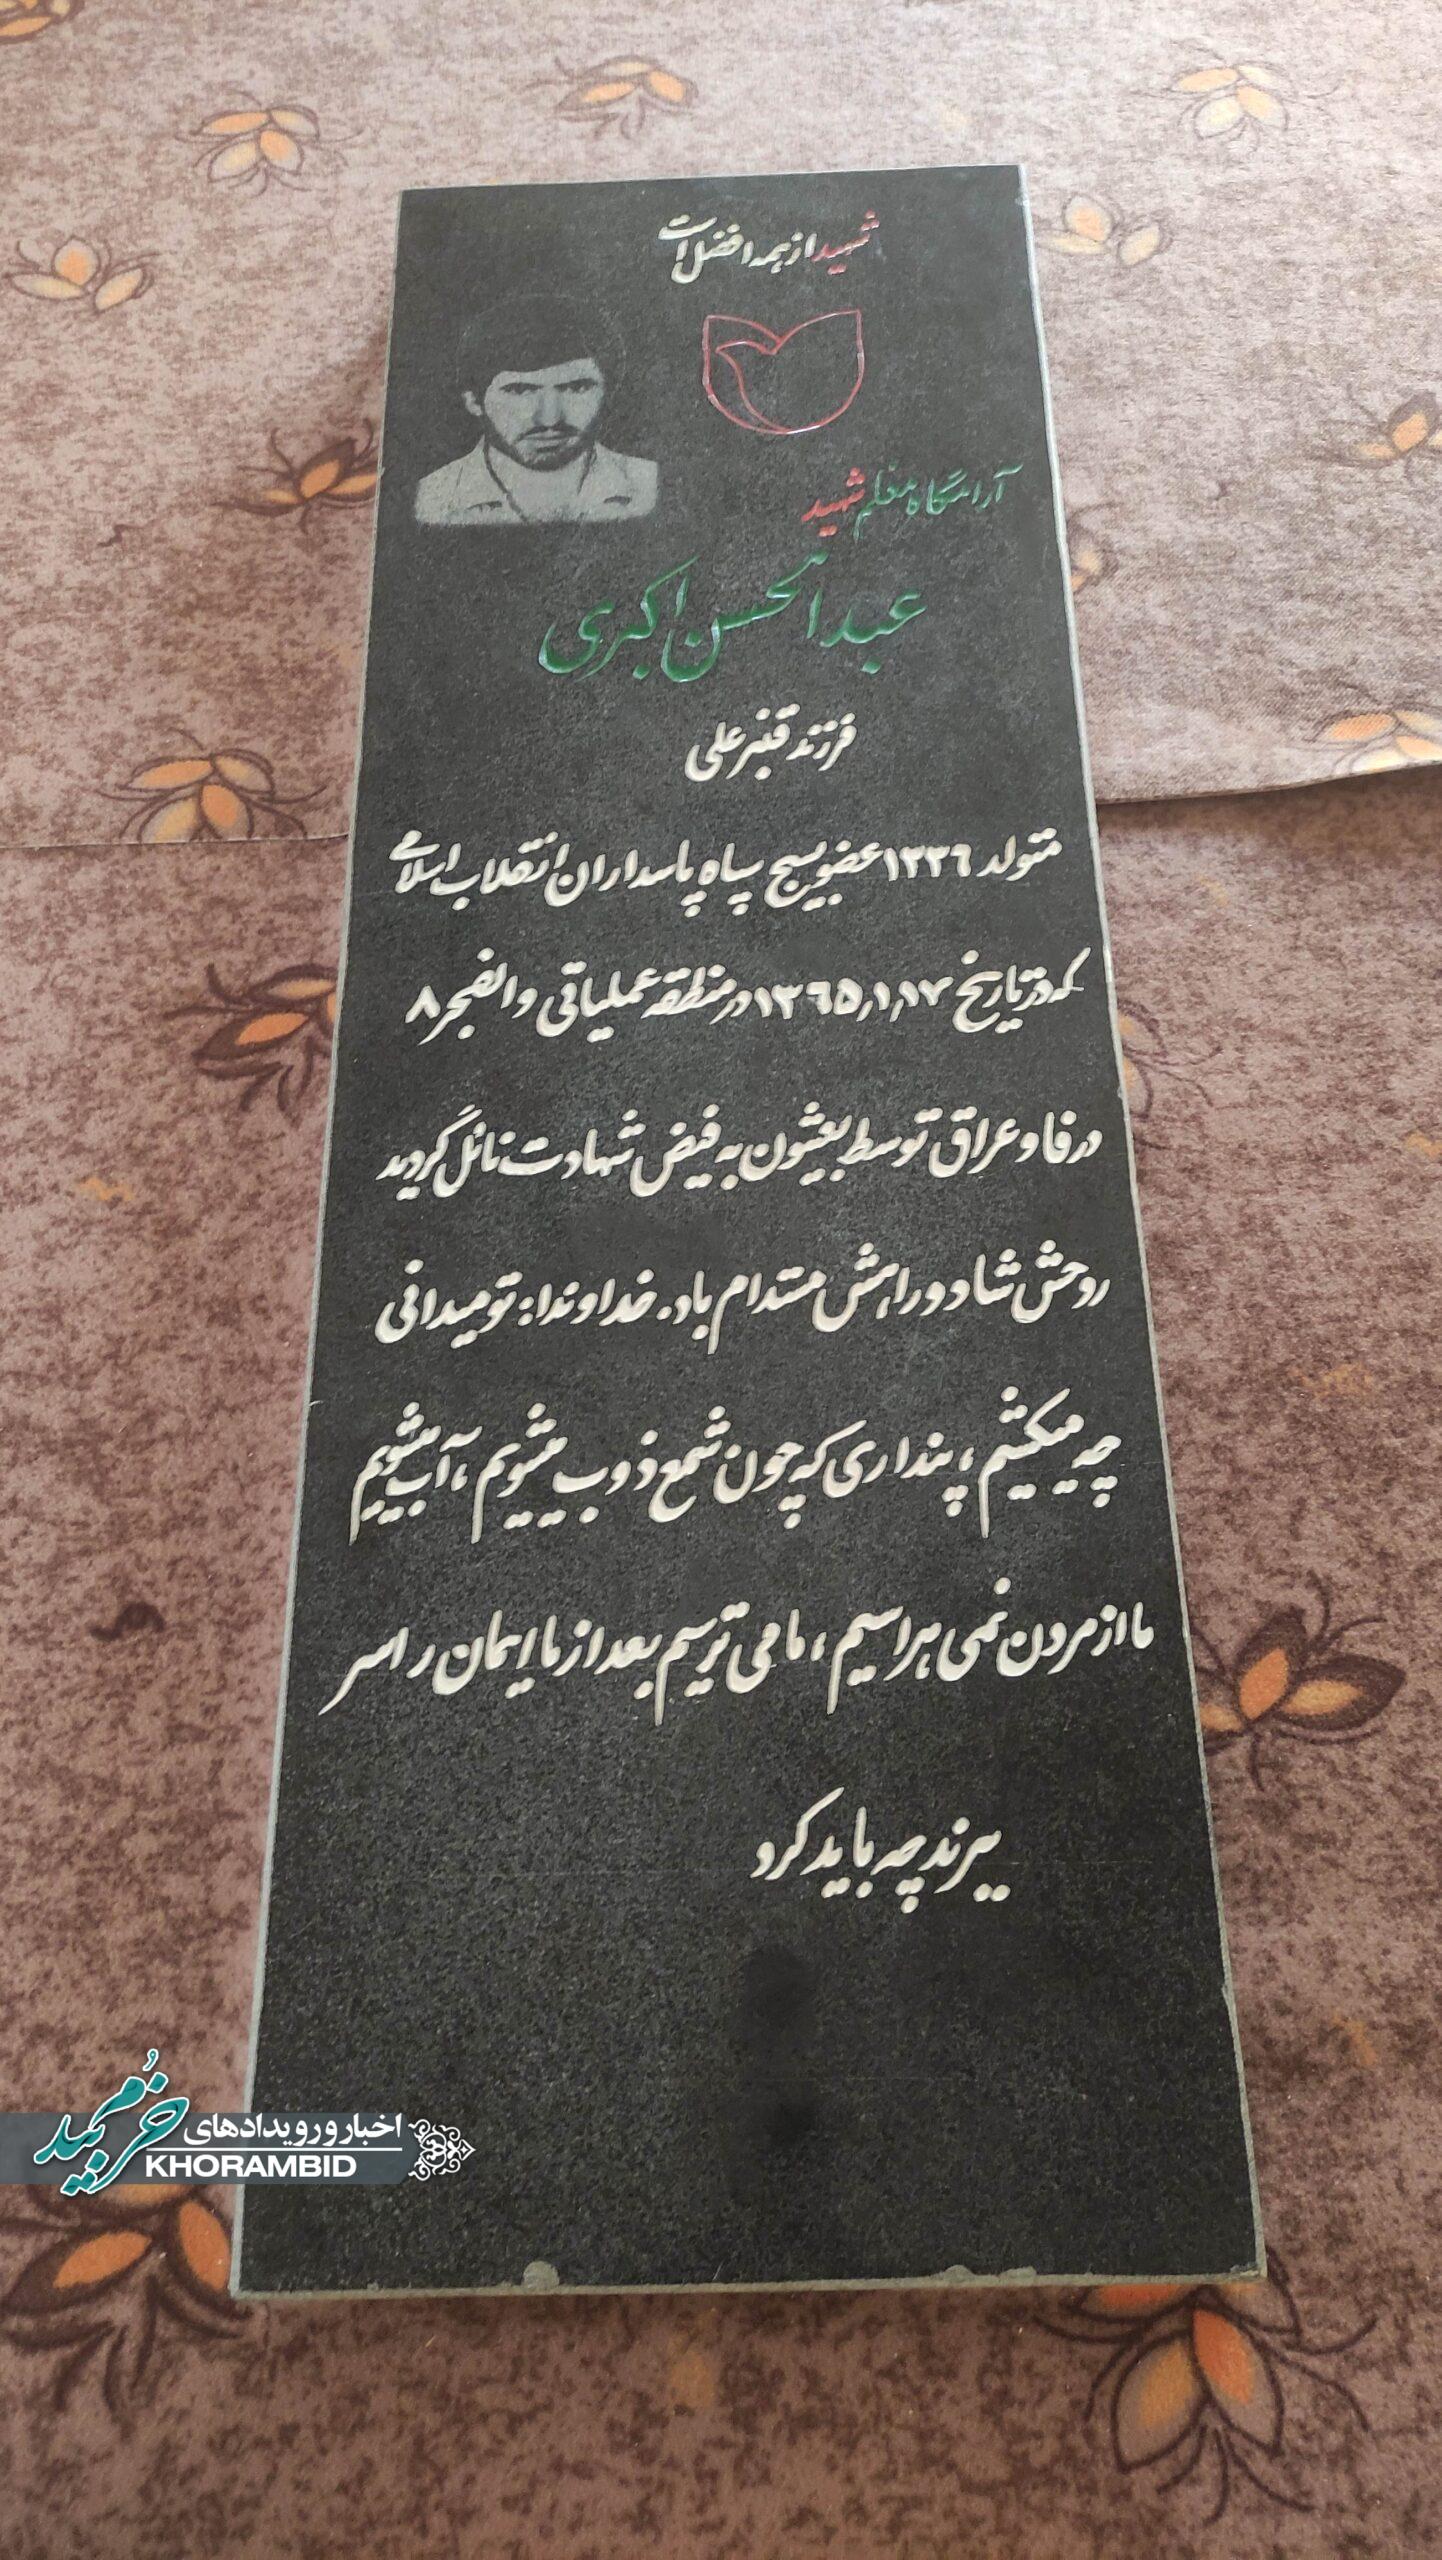 شهید از همه افضل است
آرامگاه معلم شهید
عبدالحسن اکبری
فرزند قنبرعلی
متولد ۱۳۳۶ عضو بسیج سپاه پاسداران انقلاب اسلامی
که در تاریخ ۱۳۶۵٫۱٫۱۷ در منطقه عملیاتی والفجر ۸
در فاو عراق توسط بعثیون به فیض شهادت نائل گردید
روحش شاد و راهش مستدام باد. خداوندا: تو میدانی
چه میکشیم، پنداری که چون شمع ذوب میشویم، آب میشویم
ما از مردن نمی هراسیم، ما می ترسیم بعد از ما ایمان را سر
ببرند چه باید کرد
اخبار و رویدادهای
خرمبید
KHORAMBID